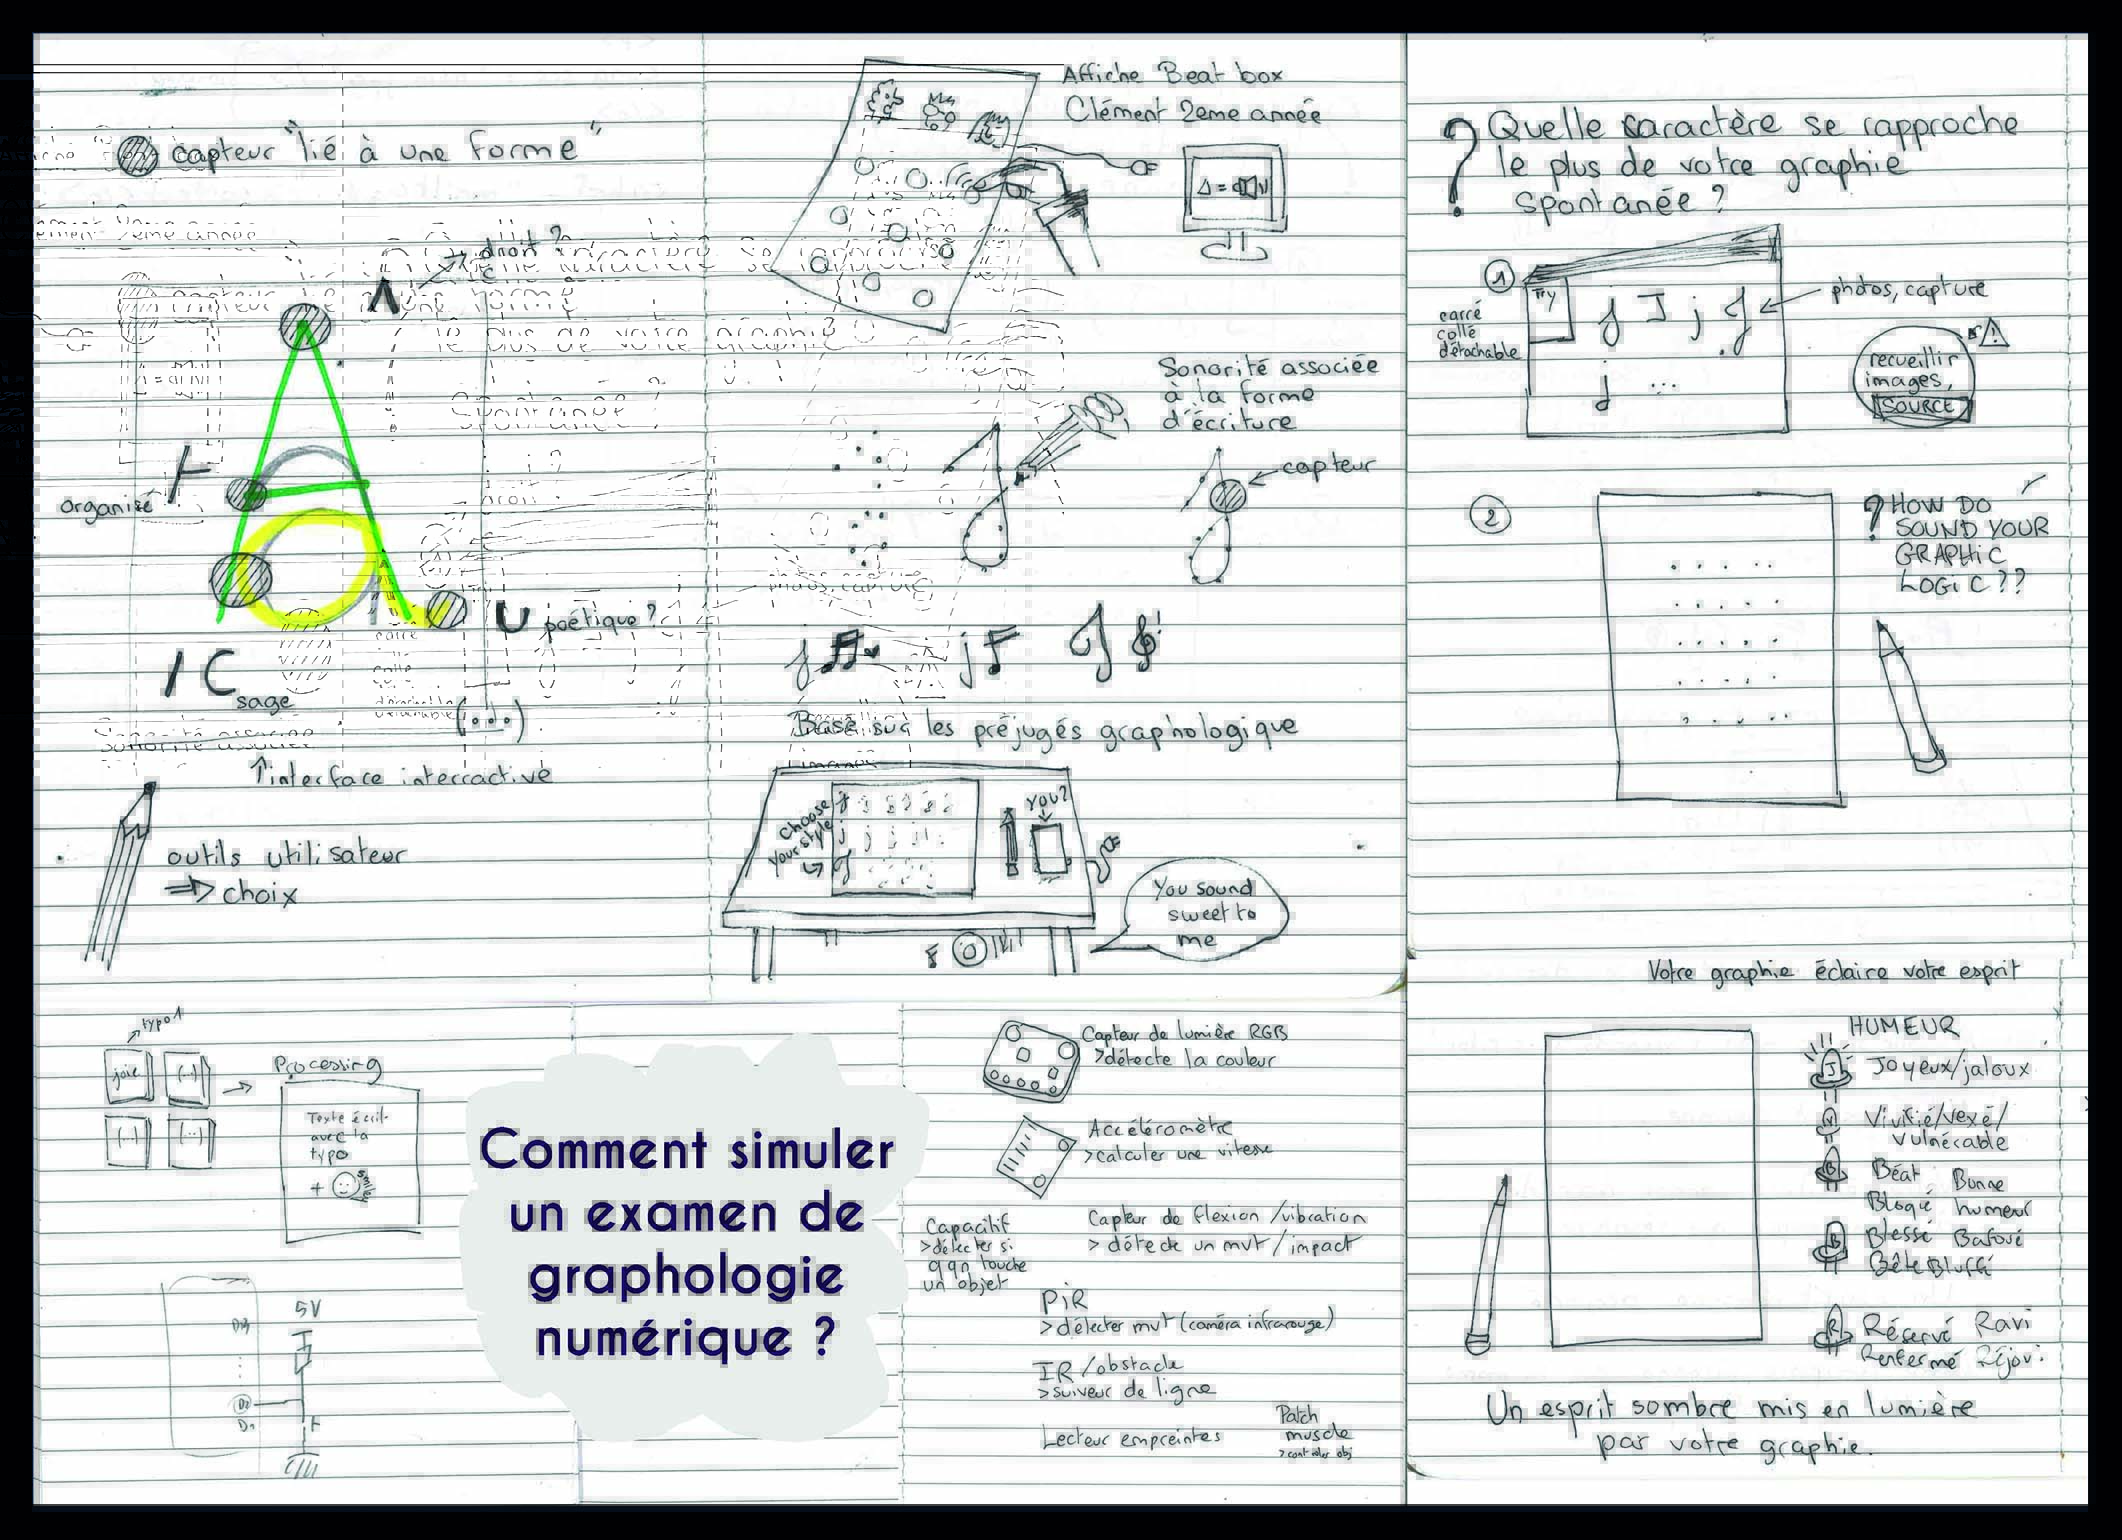 capteur "lié à une forme"
droit ?
organisé
poétique ?
sage
(...)
↑interface interractive
outils utilisateur
=> choix
Affiche Beat box
Clément 2eme année
Sonorité associée
à la forme
d'écriture
capteur
Basé sur les préjugés graphologique
Choose
your style
YOU?
You sound
sweet to
me
? Quelle caractère se rapproche
le plus de votre graphie
spontanée ?
1
Try
j J j J
j ...
photos, capture
carré
collé
détachable
recueillir
images,
SOURCE
2
? HOW DO
SOUND YOUR
GRAPHIC
LOGIC ??
typo 1
joie
(...)
(...)
(...)
Processing
Texte écrit
avec la
typo
+
smiley
5V
D13
D2
Comment simuler
un examen de
graphologie
numérique ?
Capteur de lumière RGB
>détecte la couleur
Accéléromètre
>calculer une vitesse
Capacitif
>détecter si
qqn touche
un objet
Capteur de flexion /vibration
> détecte un mvt / impact
PiR
> détecter mvt (caméra infrarouge)
IR /obstacle
>suiveur de ligne
Lecteur empreintes
Patch
muscle
> controler obj
Votre graphie éclaire votre esprit
HUMEUR
J
Joyeux/jaloux
V
Vivifié/vexé/
vulnérable
B
Béat Bonne
Bloqué humeur
B
Blessé Bafoué
Bête Bluffé
R
Réservé Ravi
Renfermé Réjoui
Un esprit sombre mis en lumière
par votre graphie.